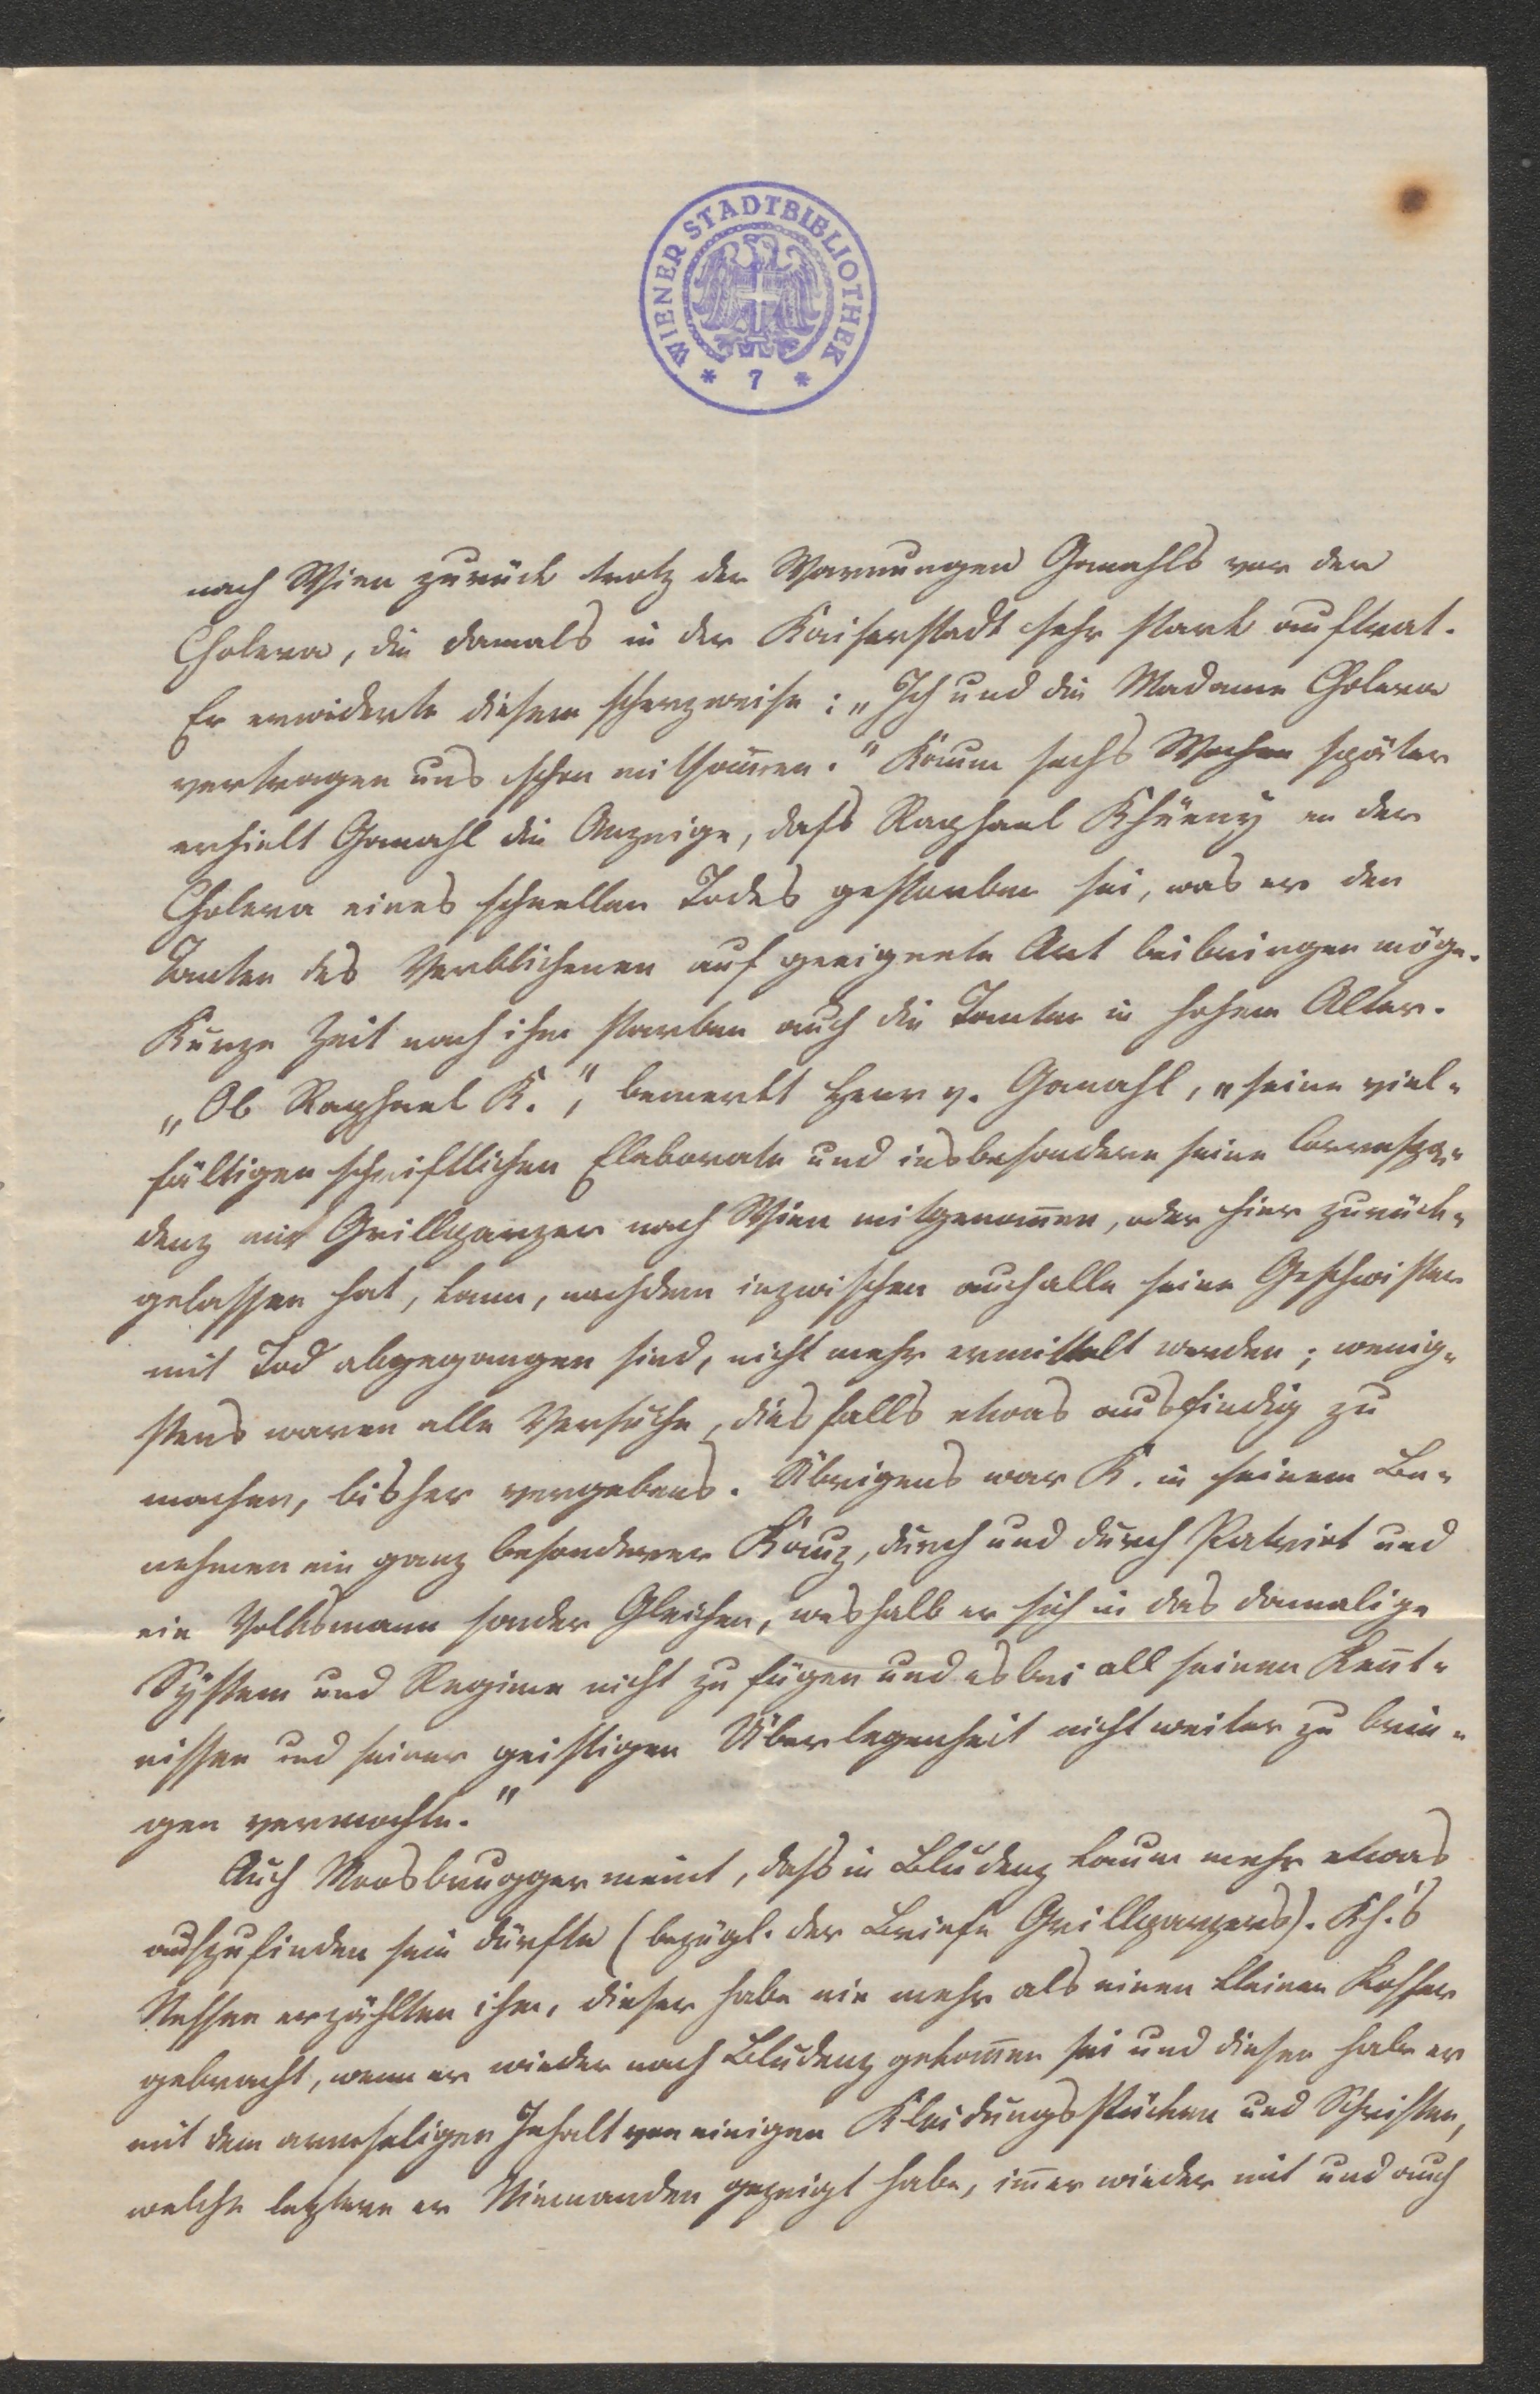 WIENER STADTBIBLIOTHEK
* 7 *
nach Wien zurück trotz der Warnungen Ganahls vor der
Cholera, die damals in der Kaiserstadt sehr stark auftrat.
Er erwiderte diesem scherzweise: „Ich und die Madame Cholera
vertragen uns schon mitsam̄en." Kaum sechs Wochen später
erhielt Ganahl die Anzeige, dass Raphael Khüeny an der
Cholera eines schnellen Todes gestorben sei, was er den
Tanten des Verblichenen auf geeignete Art beibringen möge.
Kurze Zeit nach ihm starben auch die Tanten in hohem Alter.
„Ob Raphael K.", bemerkt Herr v. Ganahl, „seine viel-
fältigen schriftlichen Elaborate und insbesondere seine Correspon-
denz mit Grillparzer nach Wien mitgenom̄en, oder hier zurück-
gelassen hat, kann, nachdem inzwischen auch alle seine Geschwister
mit Tod abgegangen sind, nicht mehr ermittelt werden; wenig-
stens waren alle Versuche, diesfalls etwas ausfindig zu
machen, bisher vergebens. Übrigens war K. in seinem Be-
nehmen ein ganz besonderer Kauz, durch und durch Patriot und
ein Volksmann sonder Gleichen, weshalb er sich in das damalige
System und Regime nicht zu fügen und es bei all seinen Ken̄t-
nissen und seiner geistigen Überlegenheit nicht weiter zu brin-
gen vermochte."
Auch Moosbrugger meint, dass in Bludenz kaum mehr etwas
aufzufinden sein dürfte (bezügl. der Briefe Grillparzers). Kh.'s
Neffen erzählten ihm, dieser habe nie mehr als einen kleinen Koffer
gebracht, wenn er wieder nach Bludenz gekom̄en sei und diesen habe er
mit dem armseligen Inhalt von einigen Kleidungsstücken und Schriften,
welche letztere er Niemanden gezeigt habe, im̄er wieder mit und auch